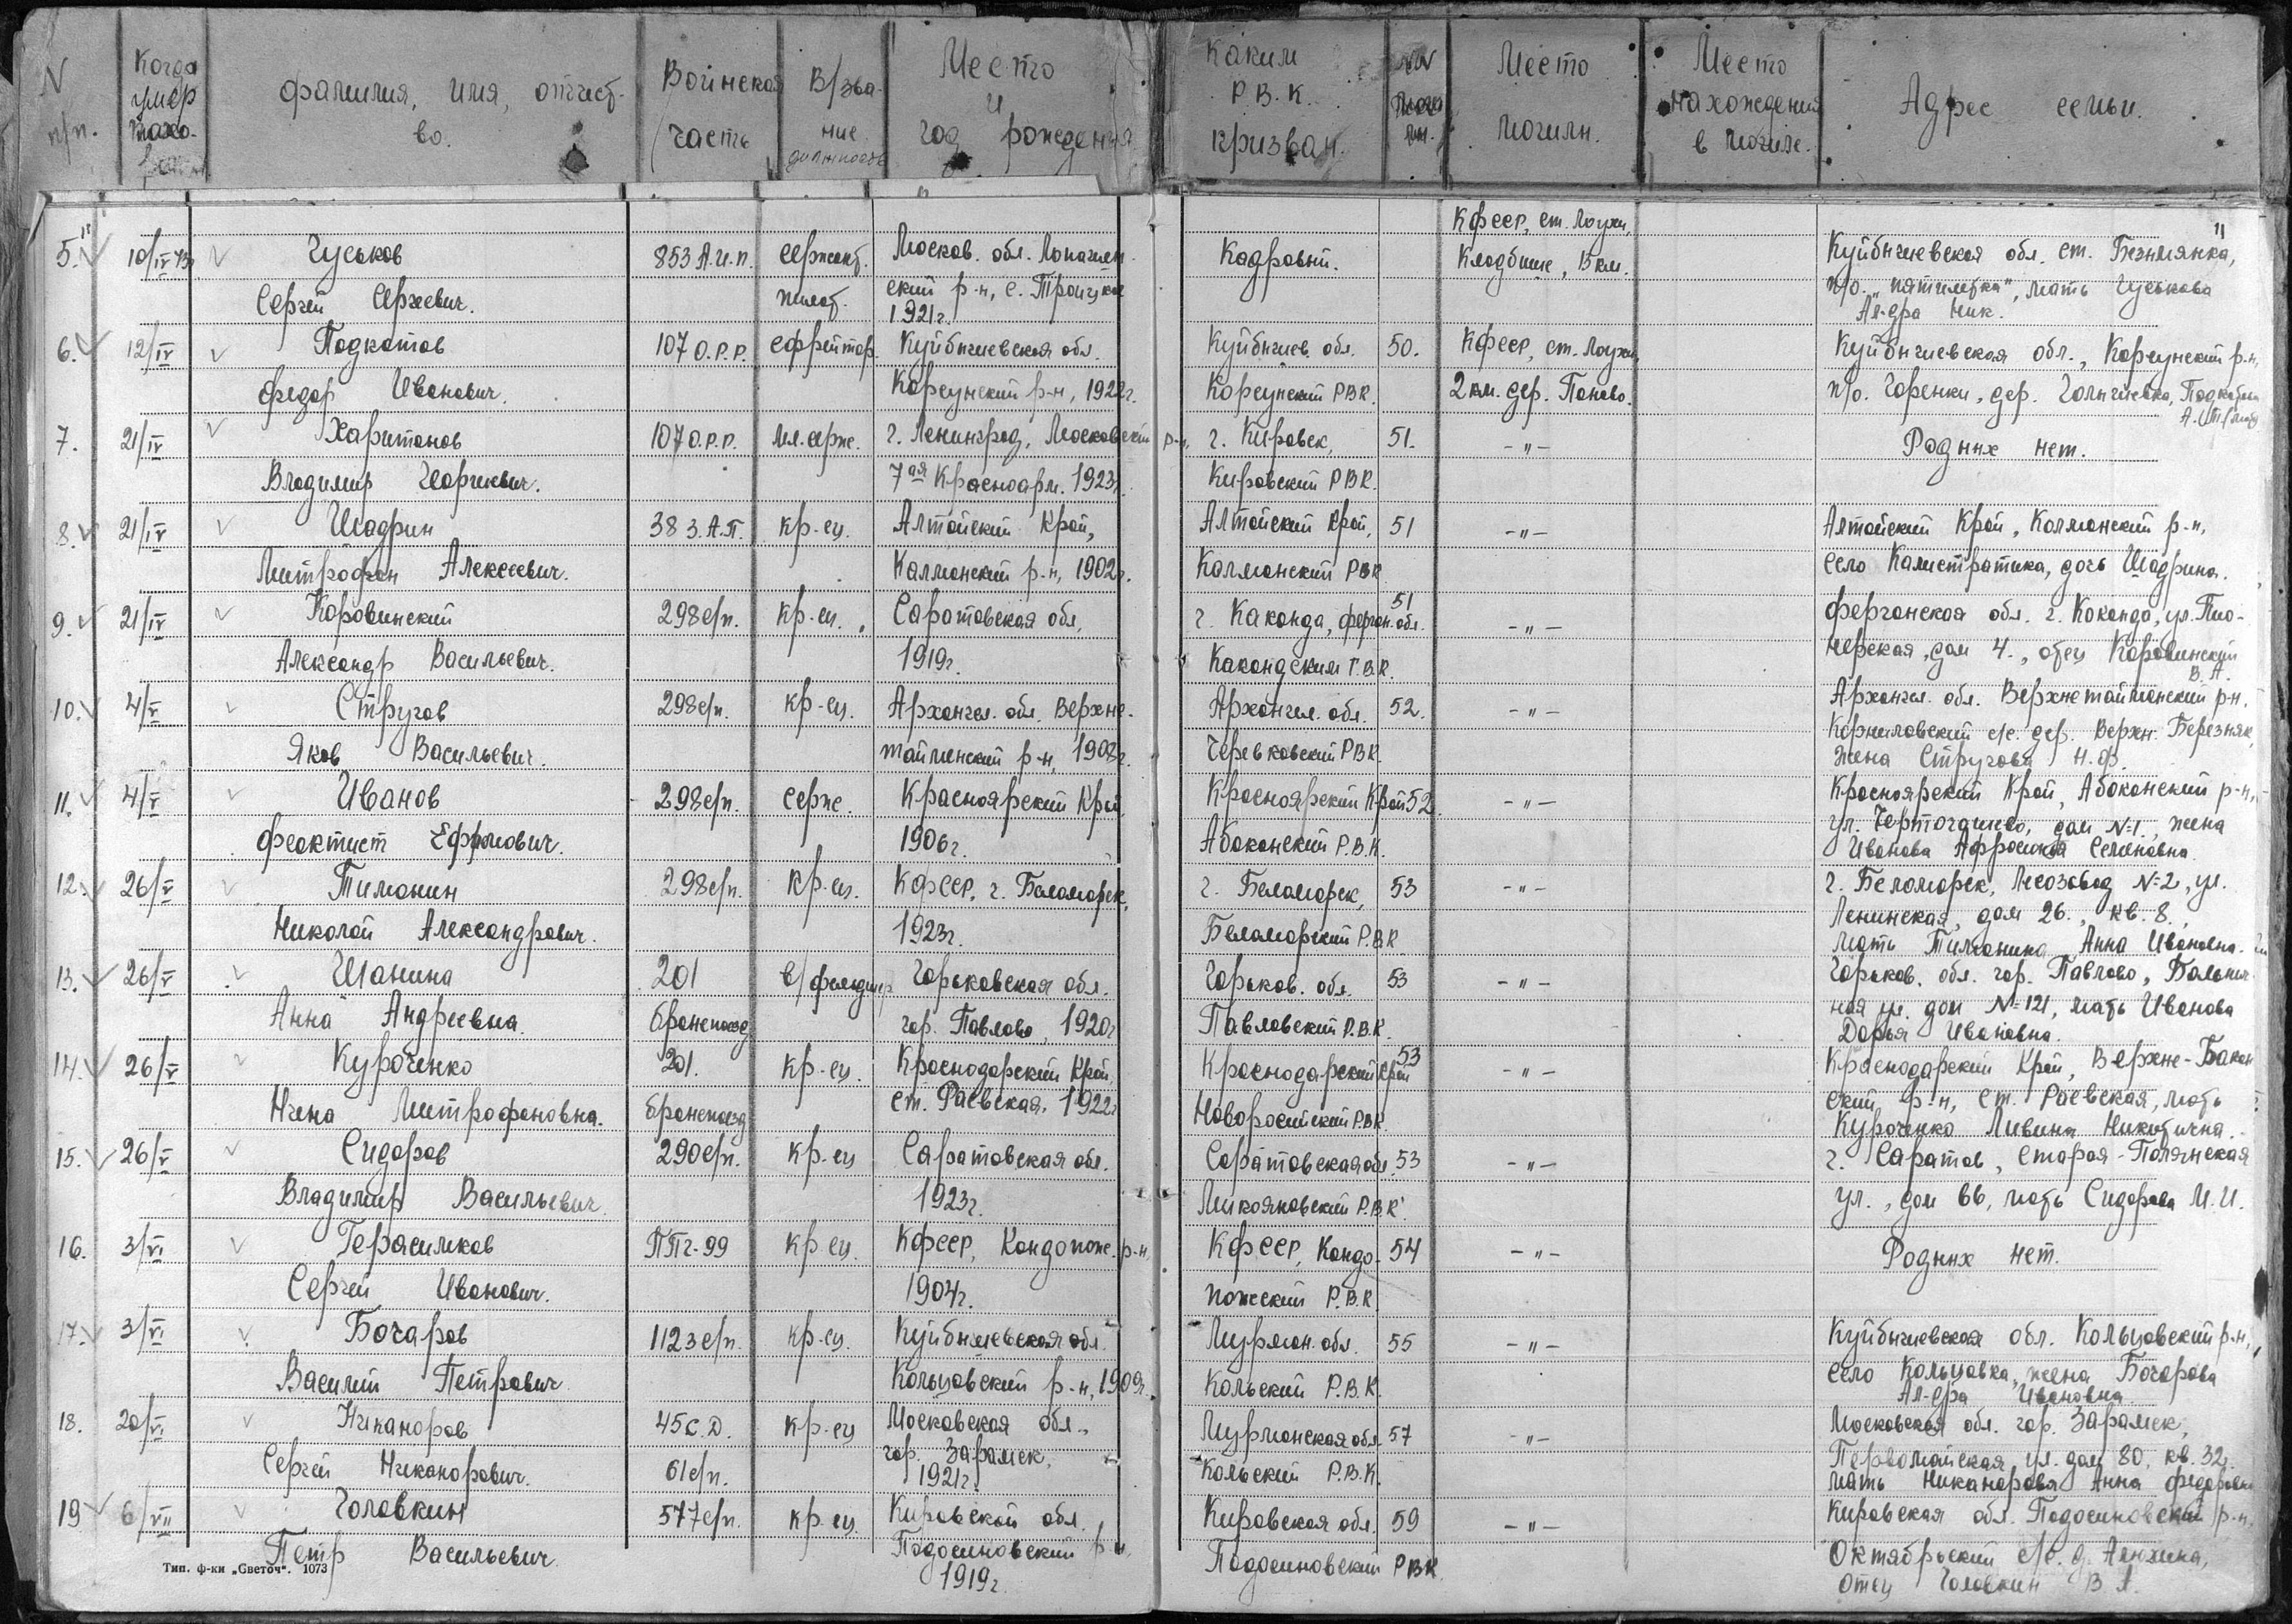 N п/п. Когда умер похо- Фамилия, имя, отчест- во. Воинская часть В/зва- ние должность Место и год рождения Каким Р.В.К. призван. NN Место могилы. Место нахождения в могиле. Адрес семьи.
Кфсср, ст. Лоухи,
5. 10/IV 43 Гуськов 853 А.И.П. сержант. Москов. обл. Лопаснен- Кадровый. Кладбище, 15 км. Куйбышевская обл. ст. Безымянка,
Сергей Сергеевич. пилот. ский р-н, с. Троицкое п/о. "пятилетка", мать Гуськова
1921г. Ал-дра Ник.
6. 12/IV Подкатов 107 О.Р.Р. ефрейтор. Куйбышевская обл. Куйбышев. обл. 50. Кфсср, ст. Лоухи, Куйбышевская обл., Карсунский р-н,
Федор Иванович. Карсунский р-н, 1922г. Карсунский РВК. 2 км. дер. Паново. п/о. Горенки, дер. Голышевка, Подкатова
7. 21/IV Харитонов 107 О.Р.Р. Мл.серж. г. Ленинград, Московский р-н, г. Кировск, 51. -"- Родных нет.
Владимир Георгиевич. 7ая Красноарм. 1923г. Кировский РВК.
8. 21/IV Шадрин 38 З.А.П. кр-ец. Алтайский Край, Алтайский Край, 51 -"- Алтайский Край, Калманский р-н,
Митрофан Алексеевич. Калманский р-н, 1902г. Калманский РВК село Калистратиха, дочь Шадрина.
9. 21/IV Коровинский 298 с/п. кр-ец. Саратовская обл, г. Каконда, ферган. обл. 51 -"- Ферганская обл. г. Коканда, ул. Пио-
Александр Васильевич. 1919г. Какондским Г.В.К. нерская, дом 4., отец Коровинский
В. А.
10. 4/V Стругов 298 с/п. кр-ец. Архангел. обл. Верхне- Архангел. обл. 52. -"- Архангел. обл. Верхнетоймонский р-н.
Яков Васильевич. тайменский р-н, 1908г. Черевковский РВК. Корниловский с/с. дер. Верхн. Березняк,
Жена Стругова Н. Ф.
11. 4/V Иванов 298 с/п. серж. Красноярский Край, Красноярский Край 52 -"- Красноярский Край, Абаканский р-н,
Феоктист Ефимович. 1906г. Абаканский Р.В.К. ул. дом №1., жена
Иванова Афросинья Семеновна.
12. 26/V Тимонин 298 с/п. кр-ец. Кфсср, г. Беломорск, г. Беломорск, 53 -"- г. Беломорск, Лесозавод №2, ул.
Николай Александрович. 1923г. Беломорский Р.В.К Ленинская, дом 26., кв. 8,
мать Тимонина Анна Ивановна.
13. 26/V Шанина 201 в/фельдшер Горьковская обл. Горьков. обл. 53 -"- Горьков. обл. гор. Павлово, Больнич-
Анна Андреевна. бронепоезд гор. Павлово, 1920г Павловский Р.В.К. ная ул. дом №121, мать Иванова
Дарья Ивановна.
14. 26/V Куроченко 201. кр-ец. Краснодарский Край, Краснодарский Край 53 -"- Краснодарский Край, Верхне-Бакан
Нина Митрофановна. бронепоезд ст. Раевская, 1922г Новоросийский РВК. ский р-н, ст. Раевская, мать
Куроченко Ливина Никитична.
15. 26/V Сидоров 290 с/п. кр-ец Саратовская обл. Саратовская обл. 53 -"- г. Саратов, Старая-Полянская
Владимир Васильевич. 1923г. Микояновский Р.В.К. ул., дом 66, мать Сидорова М. И.
16. 3/VI Герасимков ППг-99 кр-ец. Кфсср, Кондопож. р-н, Кфсср, Кондо- 54 -"- Родных нет.
Сергей Иванович. 1904г. пожский Р.В.К.
17. 3/VI Бочаров 1123 с/п. кр-ец. Куйбышевская обл. Мурман. обл. 55 -"- Куйбышевская обл. Кольцовский р-н,
Василий Петрович Кольцовский р-н, 1909г. Кольский Р.В.К. село Кольцовка, жена Бочарова
Ал-дра Ивановна.
18. 20/VI Никаноров 45 с.д. кр-ец Московская обл., Мурманская обл. 57 -"- Московская обл. гор. Зарамск,
Сергей Никанорович. 61 с/п. гор. Зарамск, Кольский Р.В.К. Первомайская, ул. дом 80, кв. 32,
1921г. мать Никанорова Анна Федоровна
19 6/VII Головкин 577 с/п. кр-ец. Кировской обл. Кировская обл. 59 -"- Кировская обл. Подосиновский р-н.
Петр Васильевич. Подосиновский р-н, Подосиновский РВК Октябрьский с/с. д.
1919г. Отец Головкин В. А.
Тип. ф-ки „Светоч". 1073